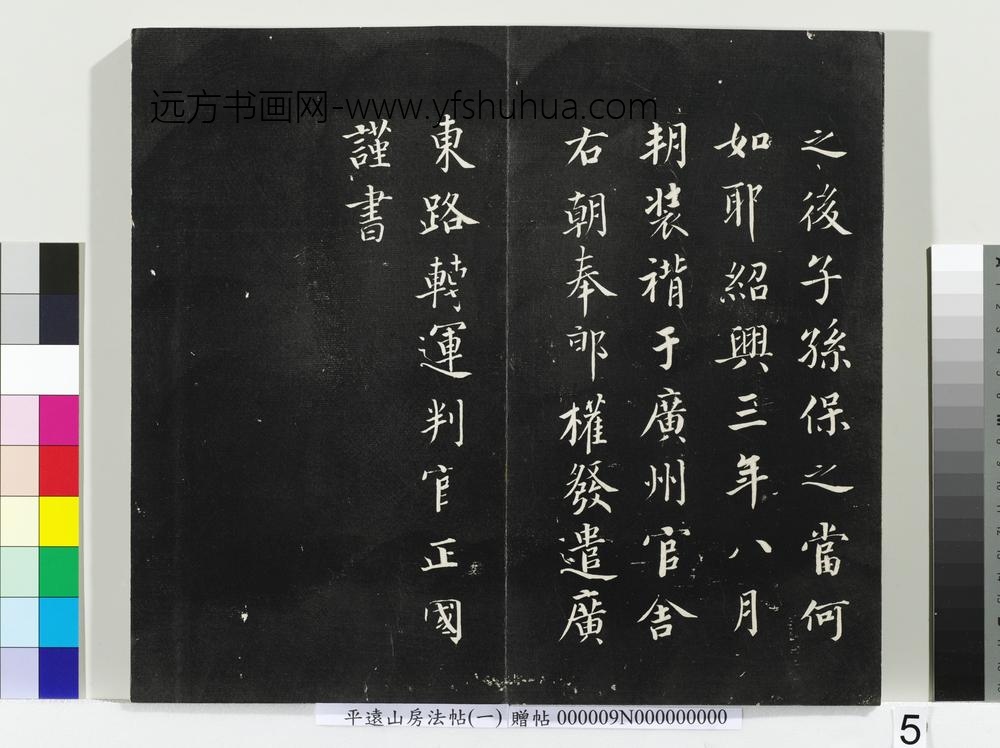 远方书画网-www.yfshuhua.com
之後子孫保之當何
如耶紹興三年八月
朝装褙于廣州官舎
右朝奉郎權發遣廣
東路轉運判官正國
謹書
平遠山房法帖(一) 贈帖 000009N000000000
5